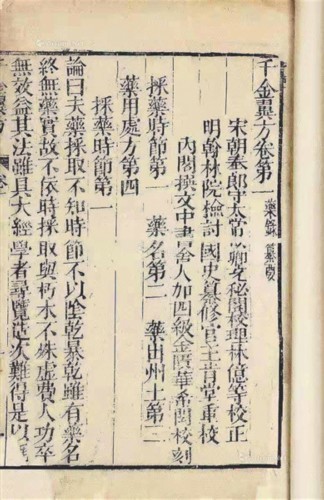 千金翼方卷第一 藥錄纂要
宋朝奉郎守太常少卿充秘閣校理林億等校正
明翰林院檢討國史纂修官王肯堂重校
內閣撰文中書舍人加四級金匱華希閎校刻
採藥時節第一 藥名第二 藥出州土第三
藥用處方第四
採藥時節第一
論曰夫藥採取不知時節不以陰乾暴乾雖有藥名
終無藥實故不依時採取與朽木不殊虛費人功卒
無效益其法雖具大經學者尋覽造次難得是以